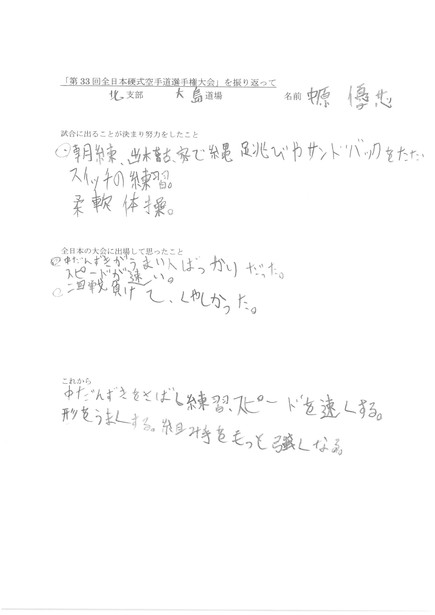 「第33回全日本硬式空手道選手権大会」を振り返って
北支部 大島道場 名前 中原 優志
試合に出ることが決まり努力をしたこと
朝練、出木曽古、家で縄跳びやサンドバックをたたい
スイッチの練習。
柔軟体操。
全日本の大会に出場して思ったこと
中だんずきがうまい人ばっかりだった。
スピードが速い。
二回戦負けて、くやしかった。
これから
中だんずきをさばく練習、スピードを速くする。
形をうまくする。組み手をもっと強くなる。